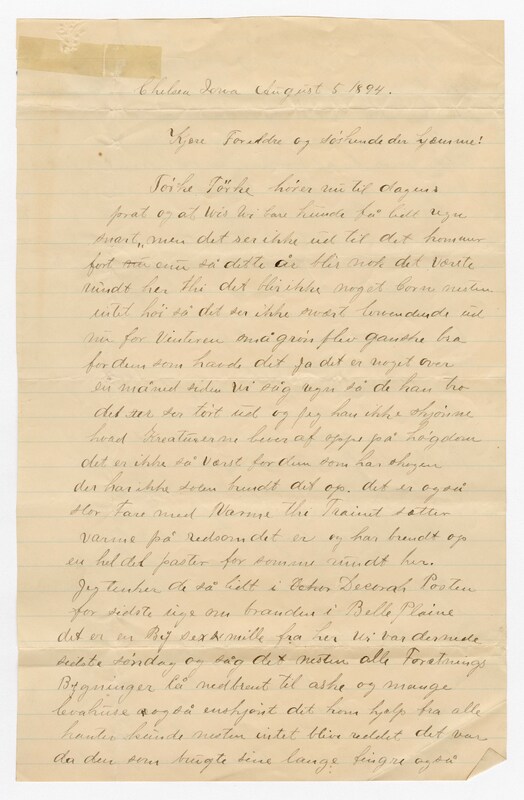 Chelsea Iowa August 5 1894.
Kjere Foreldre og söskende der hjemme!
Törke Törke hörer nu til dagens
prat og at Vis Vi bare kunde få lidt regn
snart, men det ser ikke ud til det kommer
fort enn så dette år blir nok det værste
rundt her thi det blir ikke noget Corn nesten
intet höi så det ser ikke svært lovendende ud
nu for Vinteren små grön blev ganske bra
for dem som havde det Ja det er noget over
en måned siden Vi såg regn så de kan tro
det ser tört ud og jeg kan ikke skjönne
hvad Kreaturerne lever af oppe på högdom
det er ikke så Værst for dem som har skogen
der har ikke solen brendt det op. det er også
stor Fare med Varme thi Trainet setter
varme på redsomdet er og har brendt op
en hel del paster for somme rundt her.
Jeg tenker de så lidt i Decorah Posten
for sidste uge om branden i Belle Plaine
det er en By sex mille fra her Vi var dernede
sidste söndag og såg det nesten alle Foretnings
Bygninger lå nedbrent til aske og mange
levahuse også enskjönt det kom hjelp fra alle
kanter kunde nesten intet blive reddet det var
da dem som brugte sine lange fingre også